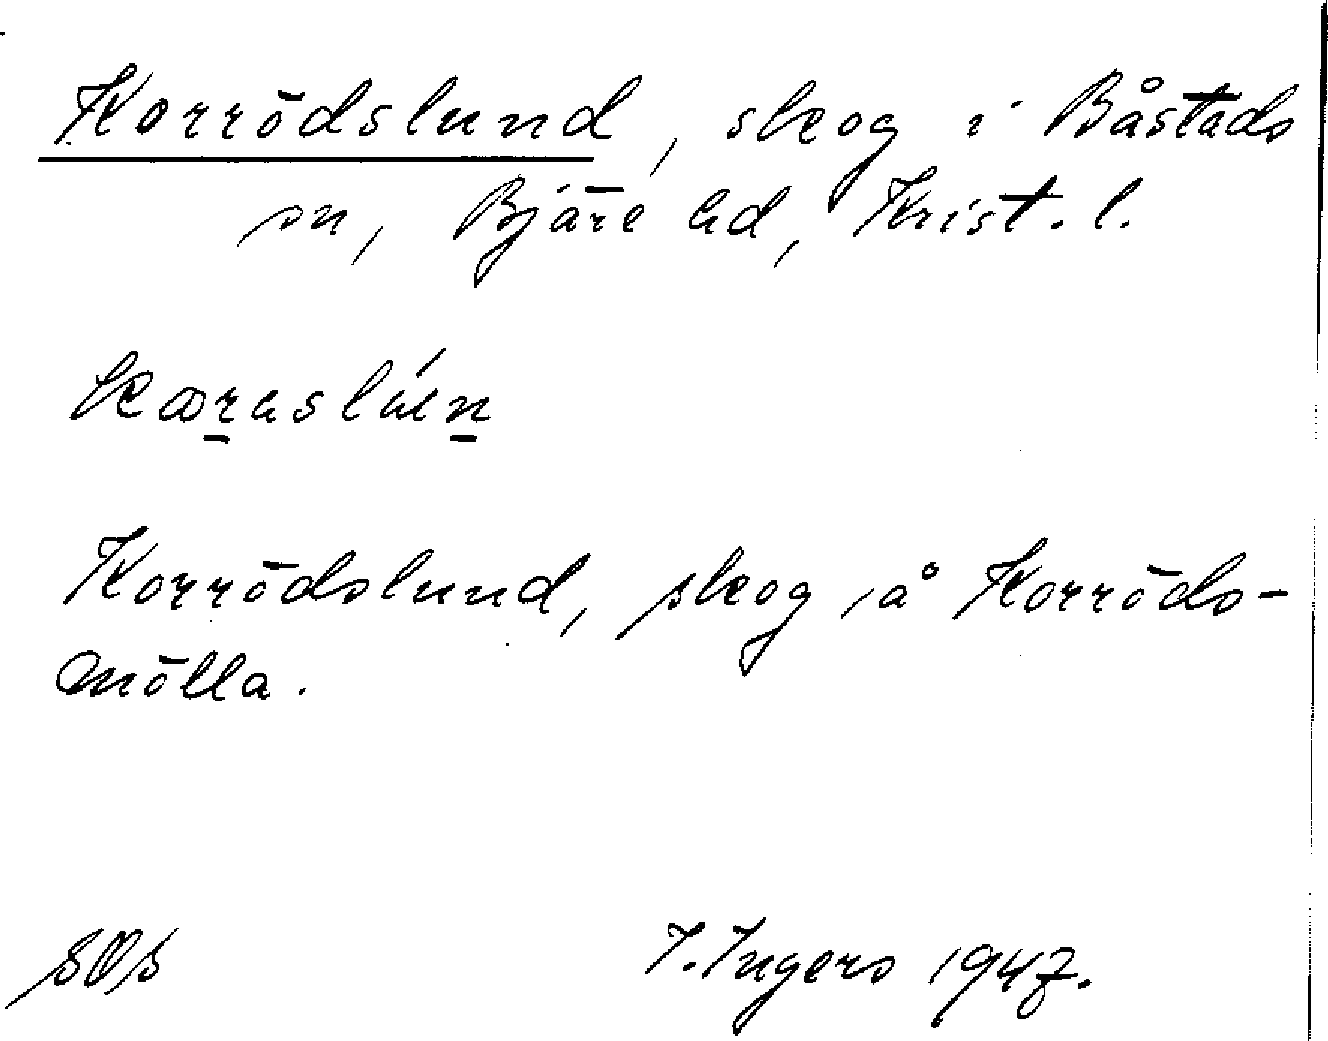 Korrödslund, skog i Båstads
sn, Bjäre hd, Krist. l.
Korrödslund, skog å Korröds-
mölla.
I. Ingers 1947.